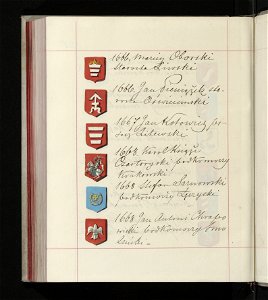 1666 Marcin Oborski
Starosta Liwski
1666 Jan Pieniążek sta-
rosta Oświecimski
1667 Jan Kotowicz
1668 Karol Książe
Czartoryski podkomorzy
Krakowski
1668 Stefan Sarnowski
podkomorzy Łęczycki
1668 Jan Antoni Chrapo-
wicki podkomorzy Smo
leński.